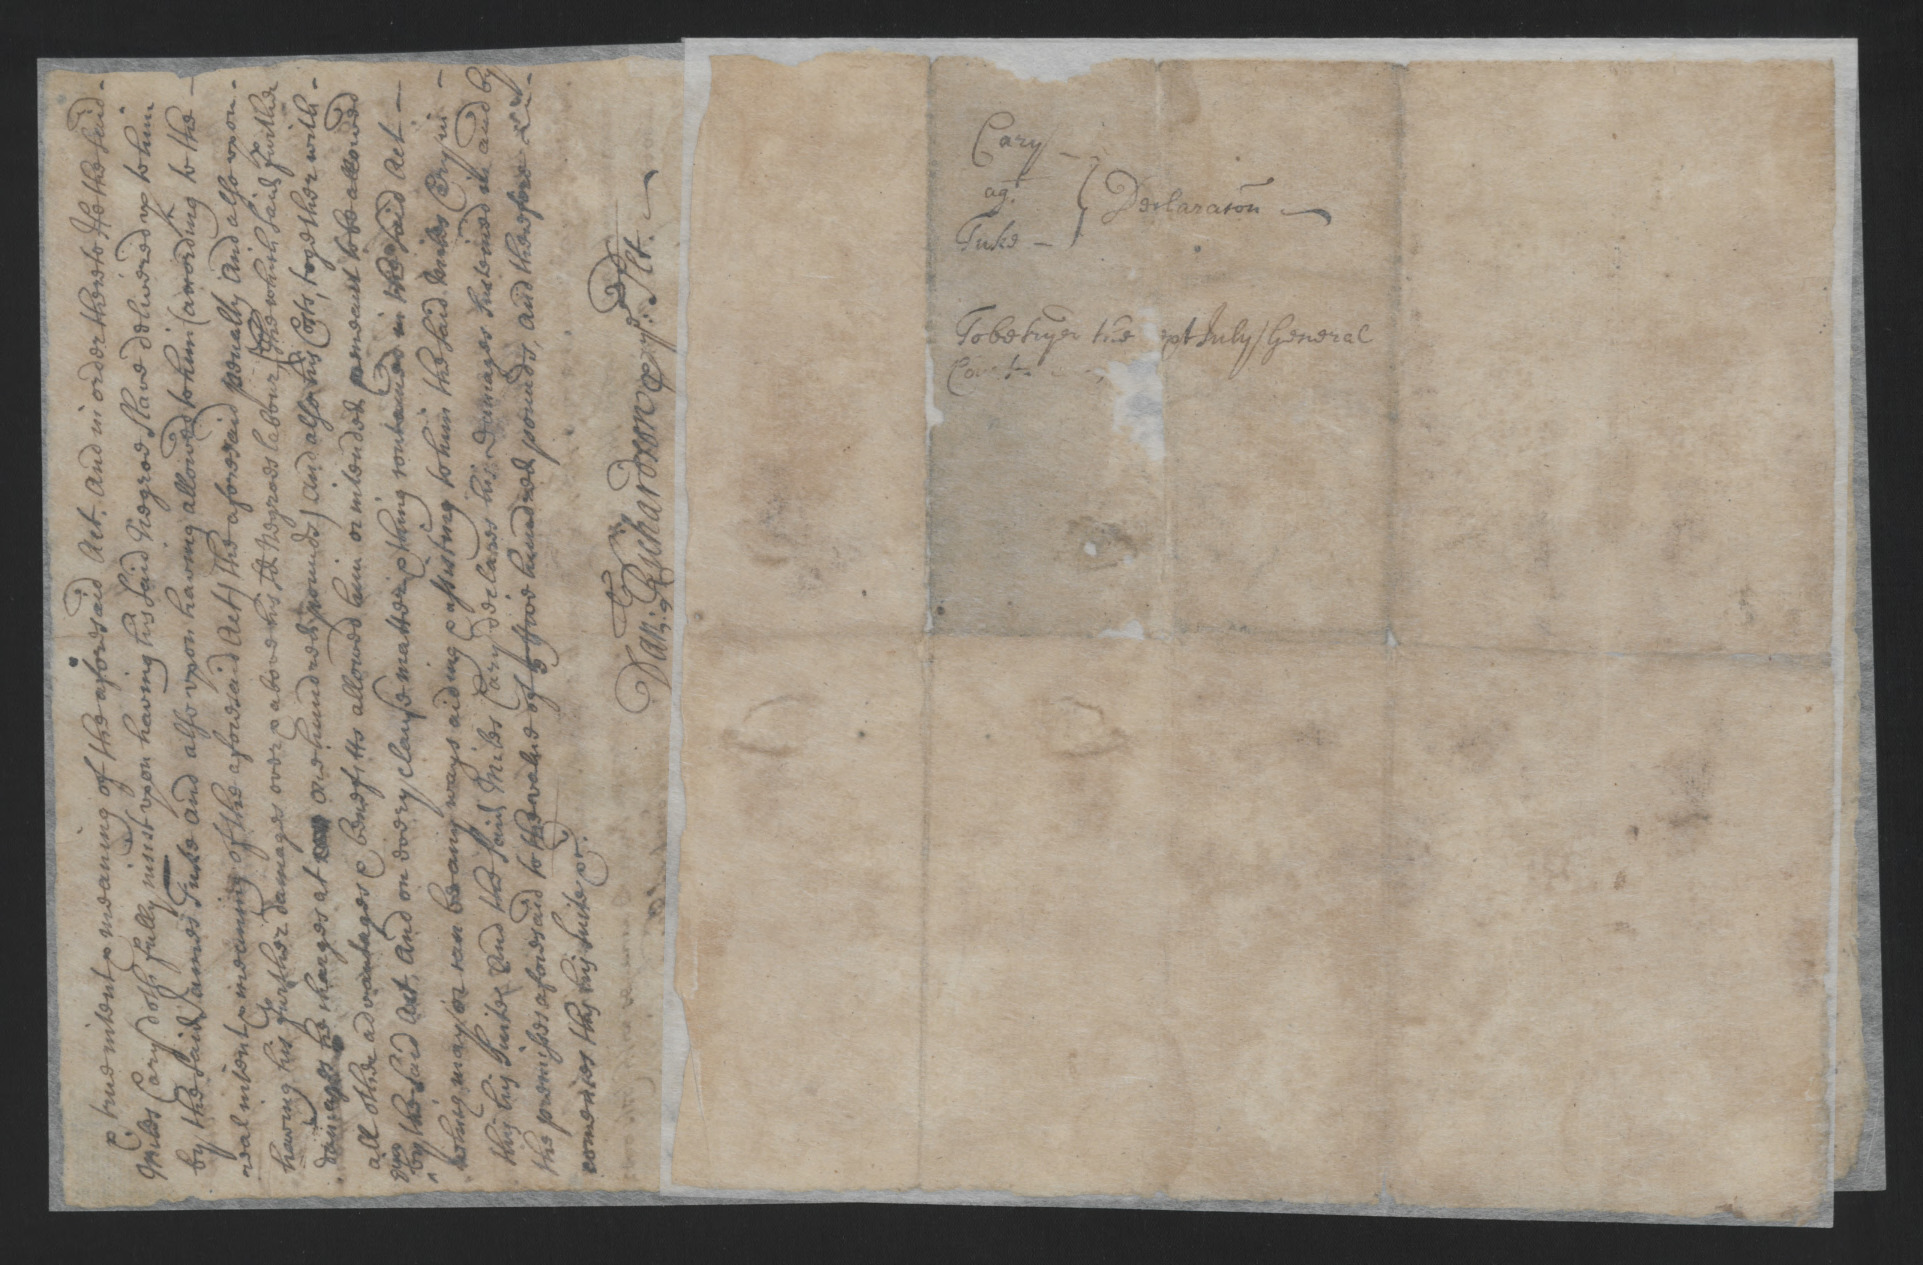 & true intent & meaning of the aforesaid Act, And in order thereto He the said
Miles Cary doth fully insist upon having his said Negroe Slave delivered up to him
by the said James Tuke and also upon having allowed to him (according to the
real intent & meaning of the aforesaid Act) the aforesaid penalty And also upon
having his further damages over & above his sd Negroes labour, the which said further
damages he charges at one hundred pounds, And also his Costs, together with
all other advantages & benefitts allowed him or intended to be allowed
him by the said Act, And on every clause matter & thing contained in the said Act
which may or can be any ways aiding & assisting to him the said Miles Cary in
this his Suite, And the said Miles Cary declares his damages sustained in and by
the premisses aforesaid to the value of five hundred pounds, and therefore
comences this his Suite &c.
Dan: Richardson pr. Plt.
Cary
agt.
Tuke
Declaracon
To be tryed the July General
Court